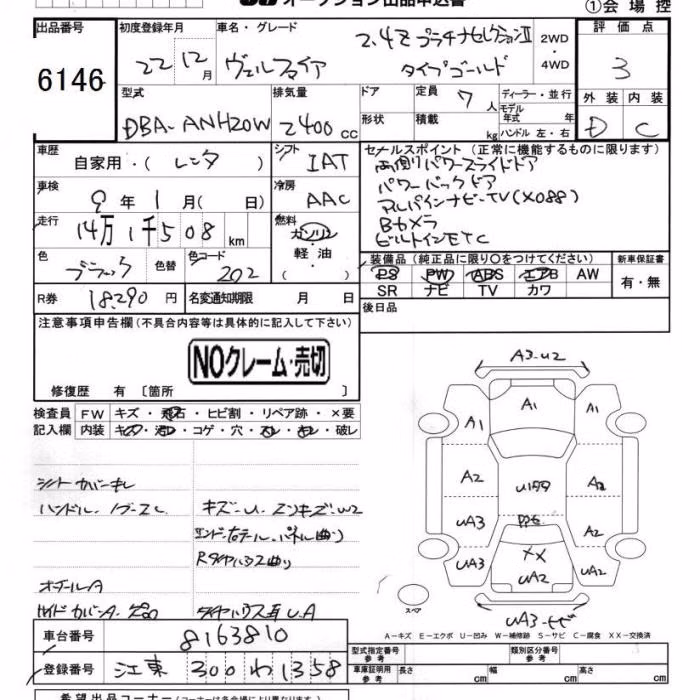 オークション出品申込書
①会場控
出品番号
6146
初度登録年月
22 12月
車名・グレード
ヴェルファイア
2.4Z プラチナセレクションⅡ
タイプゴールド
2WD
・
4WD
評価点
3
外装 内装
D C
型式
DBA-ANH20W
排気量
2400cc
ドア
形状
定員 7人
積載 kg
ディーラー・並行
モデル年式 年式
ハンドル 左・右
車歴
自家用・(レンタ)
シフト
IAT
車検
9年1月( 日)
冷房
AAC
走行
14万1千508km
燃料
ガソリン
・
軽油
・
( )
色
ブラック
色替
色コード
202
R券 18,290円
名変通知期限 月 日
セールスポイント(正常に機能するものに限ります)
両側パワースライドドア
パワーバックドア
アルパインナビ-TV(X088)
Bカメラ
ビルトインETC
装備品(純正品に限り○をつけてください)
PS PW ABS エアB AW
SR ナビ TV カワ
新車保証書
有・無
後日品
注意事項申告欄(不具合内容等は具体的に記入して下さい)
NOクレーム・売切
修復歴 有 〔箇所 〕
検査員記入欄
FW キズ・飛石・ヒビ割・リペア跡・×要
内装 コゲ・穴・破レ
シートカバーキレ
ハンドル・ノブスレ
キズ・U・エンキズ・W2
エンド・右テール・パネル曲り
Rタイヤハウス曲り
タイヤハウス耳U.A
車台番号 8163810
登録番号 江東 300 わ 1358
希望出品コーナー
A3・U2
A1
A1
A1
A2
U1
A2
UA3
A2
UA3
XX
UA2
UA2
スペア
UA3・ヒビ
A-キズ E-エクボ U-凹み W-補修跡 S-サビ C-腐食 XX-交換済
型式指定番号 参考
類別区分番号 参考
車庫証明用 参考 長さ cm 幅 cm 高さ cm